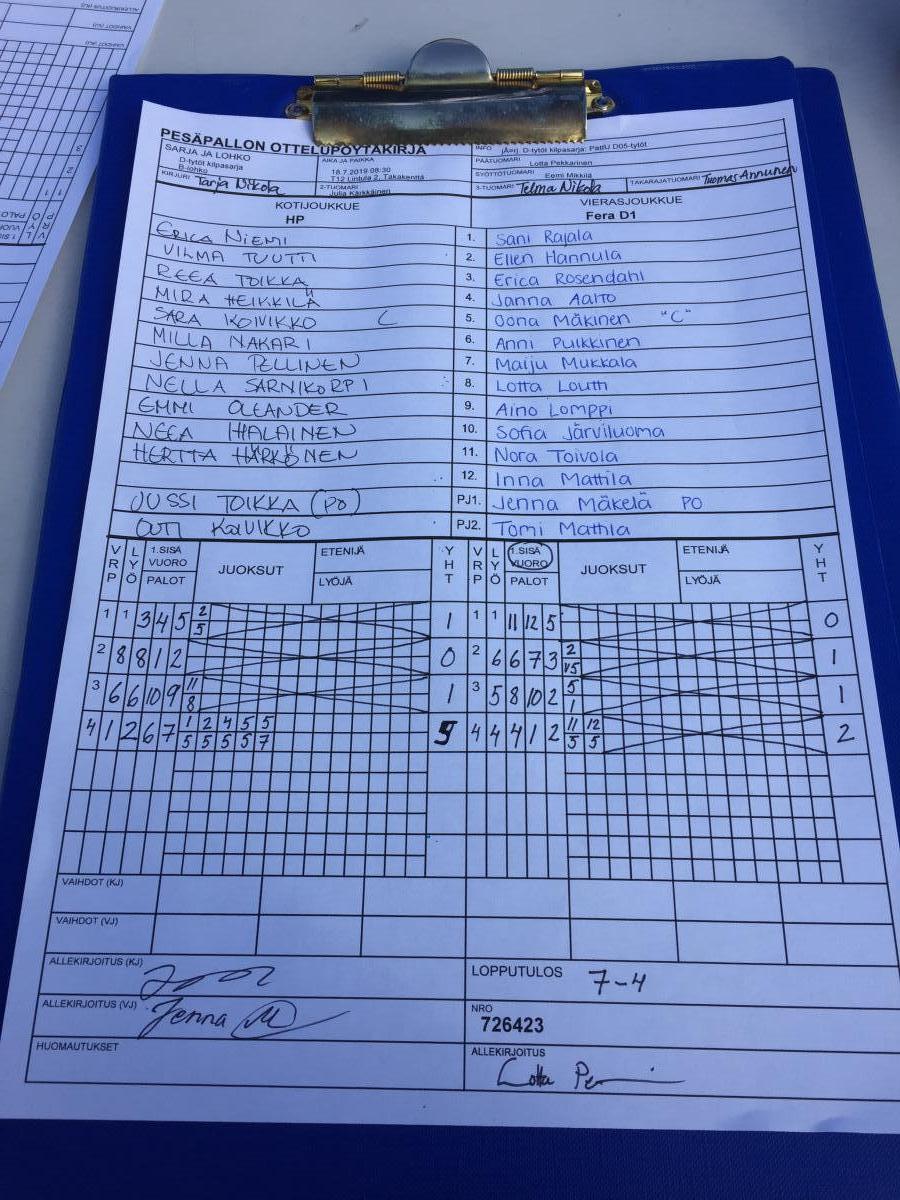 PESÄPALLON OTTELUPÖYTÄKIRJA
SARJA JA LOHKO
D-tytöt kilpasarja
B-lohko
AIKA JA PAIKKA
18.7.2019 08:30
T12 Lintula 2, Takakenttä
INFO
D-tytöt kilpasarja: PattU D05-tytöt
PÄÄTUOMARI
Lotta Pekkarinen
SYÖTTÖTUOMARI Eemi Mikkilä
KIRJURI Tarja Nikola
2-TUOMARI
Julia Kärkkäinen
3-TUOMARI Telma Nikola
TAKARAJATUOMARI Tuomas Annunen
KOTIJOUKKUE
HP
VIERASJOUKKUE
Fera D1
ERICA NIEMI 1. Sani Rajala
VILMA TUUTTI 2. Ellen Hannula
REEA TOIKKA 3. Erica Rosendahl
MIRA HEIKKILÄ 4. Janna Aalto
SARA KOIVIKKO C 5. Oona Mäkinen "C"
MILLA NAKARI 6. Anni Pulkkinen
JENNA PELLINEN 7. Maiju Mukkala
NELLA SARNIKORPI 8. Lotta Louth
EMMI OLEANDER 9. Aino Lomppi
NEEA HALAINEN 10. Sofia Järviluoma
HERTTA HÄRKÖNEN 11. Nora Toivola
12. Inna Mattila
JUSSI TOIKKA (PO) PJ1. Jenna Mäkelä PO
OUTI KOIVIKKO PJ2. Tomi Mathla
VRP LYÖ 1.SISÄ VUORO PALOT JUOKSUT ETENIJÄ LYÖJÄ YHT VRP LYÖ 1.SISÄ VUORO PALOT JUOKSUT ETENIJÄ LYÖJÄ YHT
1 1 3 4 5 2/5 1 1 1 11 12 5 0
2 8 8 1 2 0 2 6 6 7 3 2/5 1
3 6 6 10 9 11/8 1 3 5 8 10 2 5/1 1
4 1 2 6 7 1/5 2/5 4/5 5/5 5/7 5 4 4 4 1 2 11/5 12/5 2
VAIHDOT (KJ)
VAIHDOT (VJ)
ALLEKIRJOITUS (KJ)
LOPPUTULOS 7-4
ALLEKIRJOITUS (VJ) Jenna M
NRO
726423
HUOMAUTUKSET
ALLEKIRJOITUS
Lotta